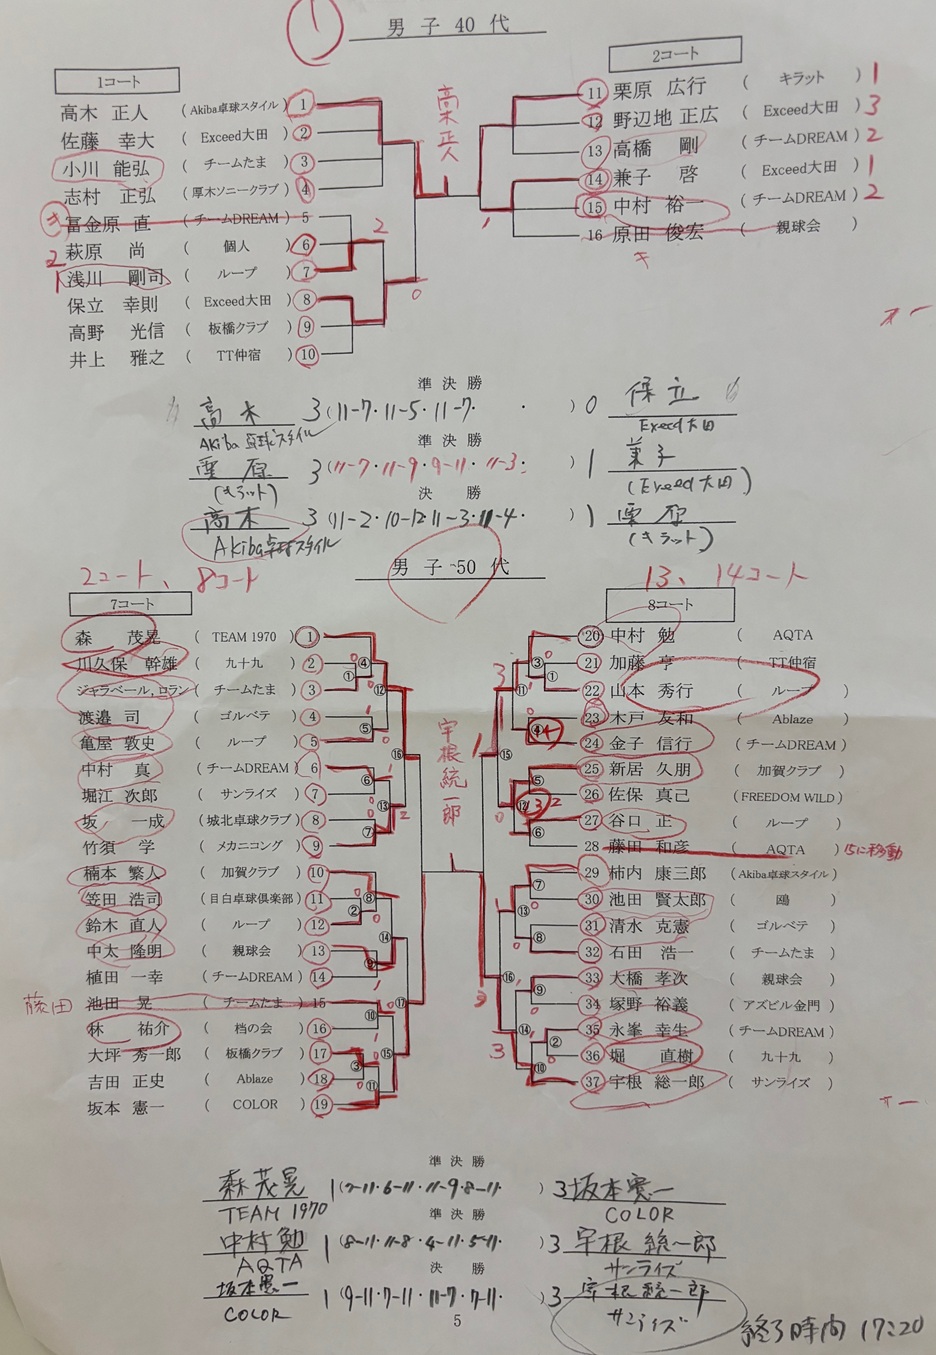 ① 男子40代
1コート
高木 正人 ( Akiba卓球スタイル ) 1
佐藤 幸大 ( Exceed大田 ) 2
小川 能弘 ( チームたま ) 3
志村 正弘 ( 厚木ソニークラブ ) 4
冨金原 直 ( チームDREAM ) 5
2 萩原 尚 ( 個人 ) 6
1 浅川 剛司 ( ループ ) 7
保立 幸則 ( Exceed大田 ) 8
高野 光信 ( 板橋クラブ ) 9
井上 雅之 ( TT仲宿 ) 10
高木正人
2
0
1
2コート
11 栗原 広行 ( キラット ) 1
12 野辺地 正広 ( Exceed大田 ) 3
13 高橋 剛 ( チームDREAM ) 2
14 兼子 啓 ( Exceed大田 ) 1
15 中村 裕一 ( チームDREAM ) 2
16 原田 俊宏 ( 親球会 )
キ
準決勝
高木 3 ( 11-7・11-5・11-7・ ・ ) 0 保立
Akiba卓球スタイル Exeed大田
準決勝
栗原 3 ( 11-7・11-9・9-11・11-3・ ) 1 兼子
(キラット) (Exeed大田)
決勝
高木 3 ( 11-2・10-12・11-3・11-4・ ) 1 栗原
Akiba卓球スタイル (キラット)
男子50代
2コート、8コート
7コート
森 茂晃 ( TEAM 1970 ) 1
川久保 幹雄 ( 九十九 ) 2
ジャラベール,ロラン ( チームたま ) 3
渡邉 司 ( ゴルベテ ) 4
亀屋 敦史 ( ループ ) 5
中村 真 ( チームDREAM ) 6
堀江 次郎 ( サンライズ ) 7
坂 一成 ( 城北卓球クラブ ) 8
竹須 学 ( メカニコング ) 9
楠本 繁人 ( 加賀クラブ ) 10
笠田 浩司 ( 目白卓球倶楽部 ) 11
鈴木 直人 ( ループ ) 12
中太 隆明 ( 親球会 ) 13
植田 一幸 ( チームDREAM ) 14
藤田 池田 晃 ( チームたま ) 15
林 祐介 ( 档の会 ) 16
大坪 秀一郎 ( 板橋クラブ ) 17
吉田 正史 ( Ablaze ) 18
坂本 憲一 ( COLOR ) 19
宇根統一郎
13、14コート
8コート
20 中村 勉 ( AQTA
21 加藤 亨 ( TT仲宿
22 山本 秀行 ( ループ )
23 木戸 友和 ( Ablaze )
24 金子 信行 ( チームDREAM )
25 新居 久朋 ( 加賀クラブ )
26 佐保 真己 ( FREEDOM WILD )
27 谷口 正 ( ループ )
28 藤田 和彦 ( AQTA ) 15に移動
29 柿内 康三郎 ( Akiba卓球スタイル )
30 池田 賢太郎 ( 鴎 )
31 清水 克憲 ( ゴルベテ )
32 石田 浩一 ( チームたま )
33 大橋 孝次 ( 親球会 )
34 塚野 裕義 ( アズビル金門 )
35 永峯 幸生 ( チームDREAM )
36 堀 直樹 ( 九十九 )
37 宇根 総一郎 ( サンライズ )
準決勝
森茂晃 1 ( 7-11・6-11・11-9・8-11・ ) 3 坂本憲一
TEAM 1970 COLOR
準決勝
中村勉 1 ( 8-11・11-8・4-11・5-11・ ) 3 宇根 総一郎
AQTA サンライズ
決勝
坂本憲一 1 ( 9-11・7-11・11-7・7-11・ ) 3 宇根 総一郎
COLOR サンライズ
5
終了時間 17:20